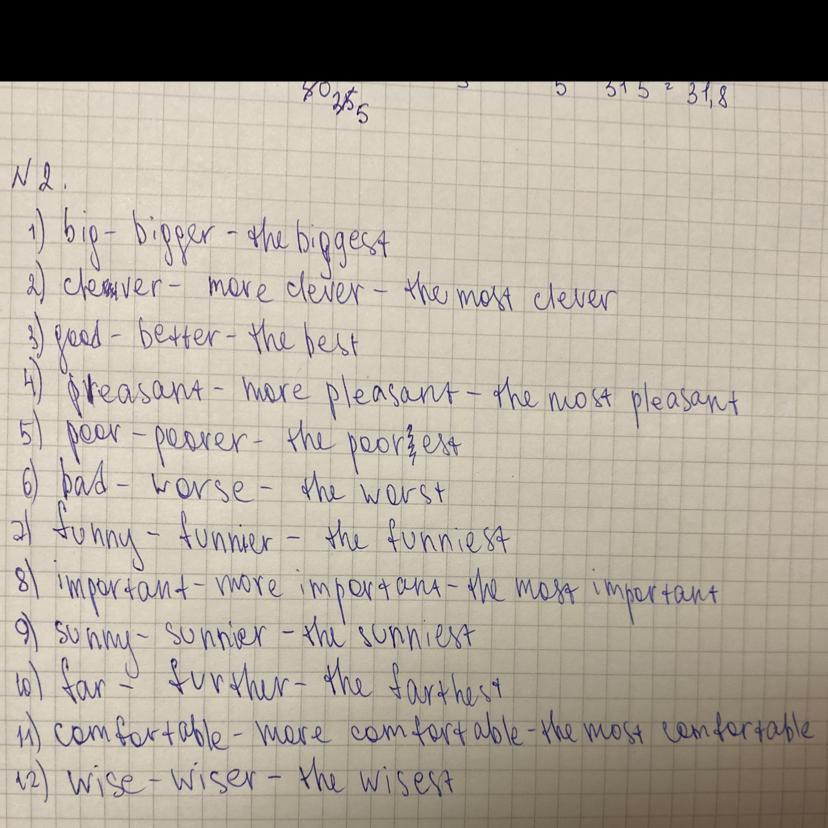 315 = 31,8
N 2.
1) big - bigger - the biggest
2) clever - more clever - the most clever
3) good - better - the best
4) pleasant - more pleasant - the most pleasant
5) poor - poorer - the poorest
6) bad - worse - the worst
7) funny - funnier - the funniest
8) important - more important - the most important
9) sunny - sunnier - the sunniest
10) far - further - the farthest
11) comfortable - more comfortable - the most comfortable
12) wise - wiser - the wisest